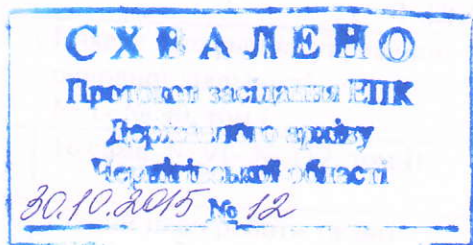 СХВАЛЕНО
Протокол засідання ЕПК
Державного архіву
Чернігівської області
30.10.2015 № 12